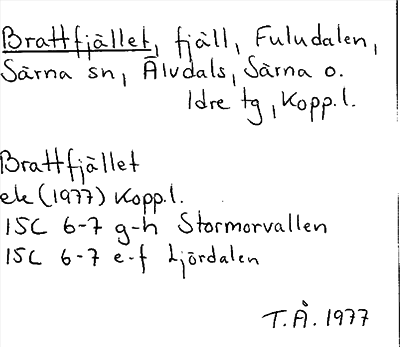 Brattfjället, fjäll, Fuludalen,
Särna sn, Älvdals, Särna o.
Idre tg, Kopp.l.
Brattfjället
ek (1977) Kopp.l.
15C 6-7 g-h Stormorvallen
15C 6-7 e-f Ljördalen
T.Å. 1977